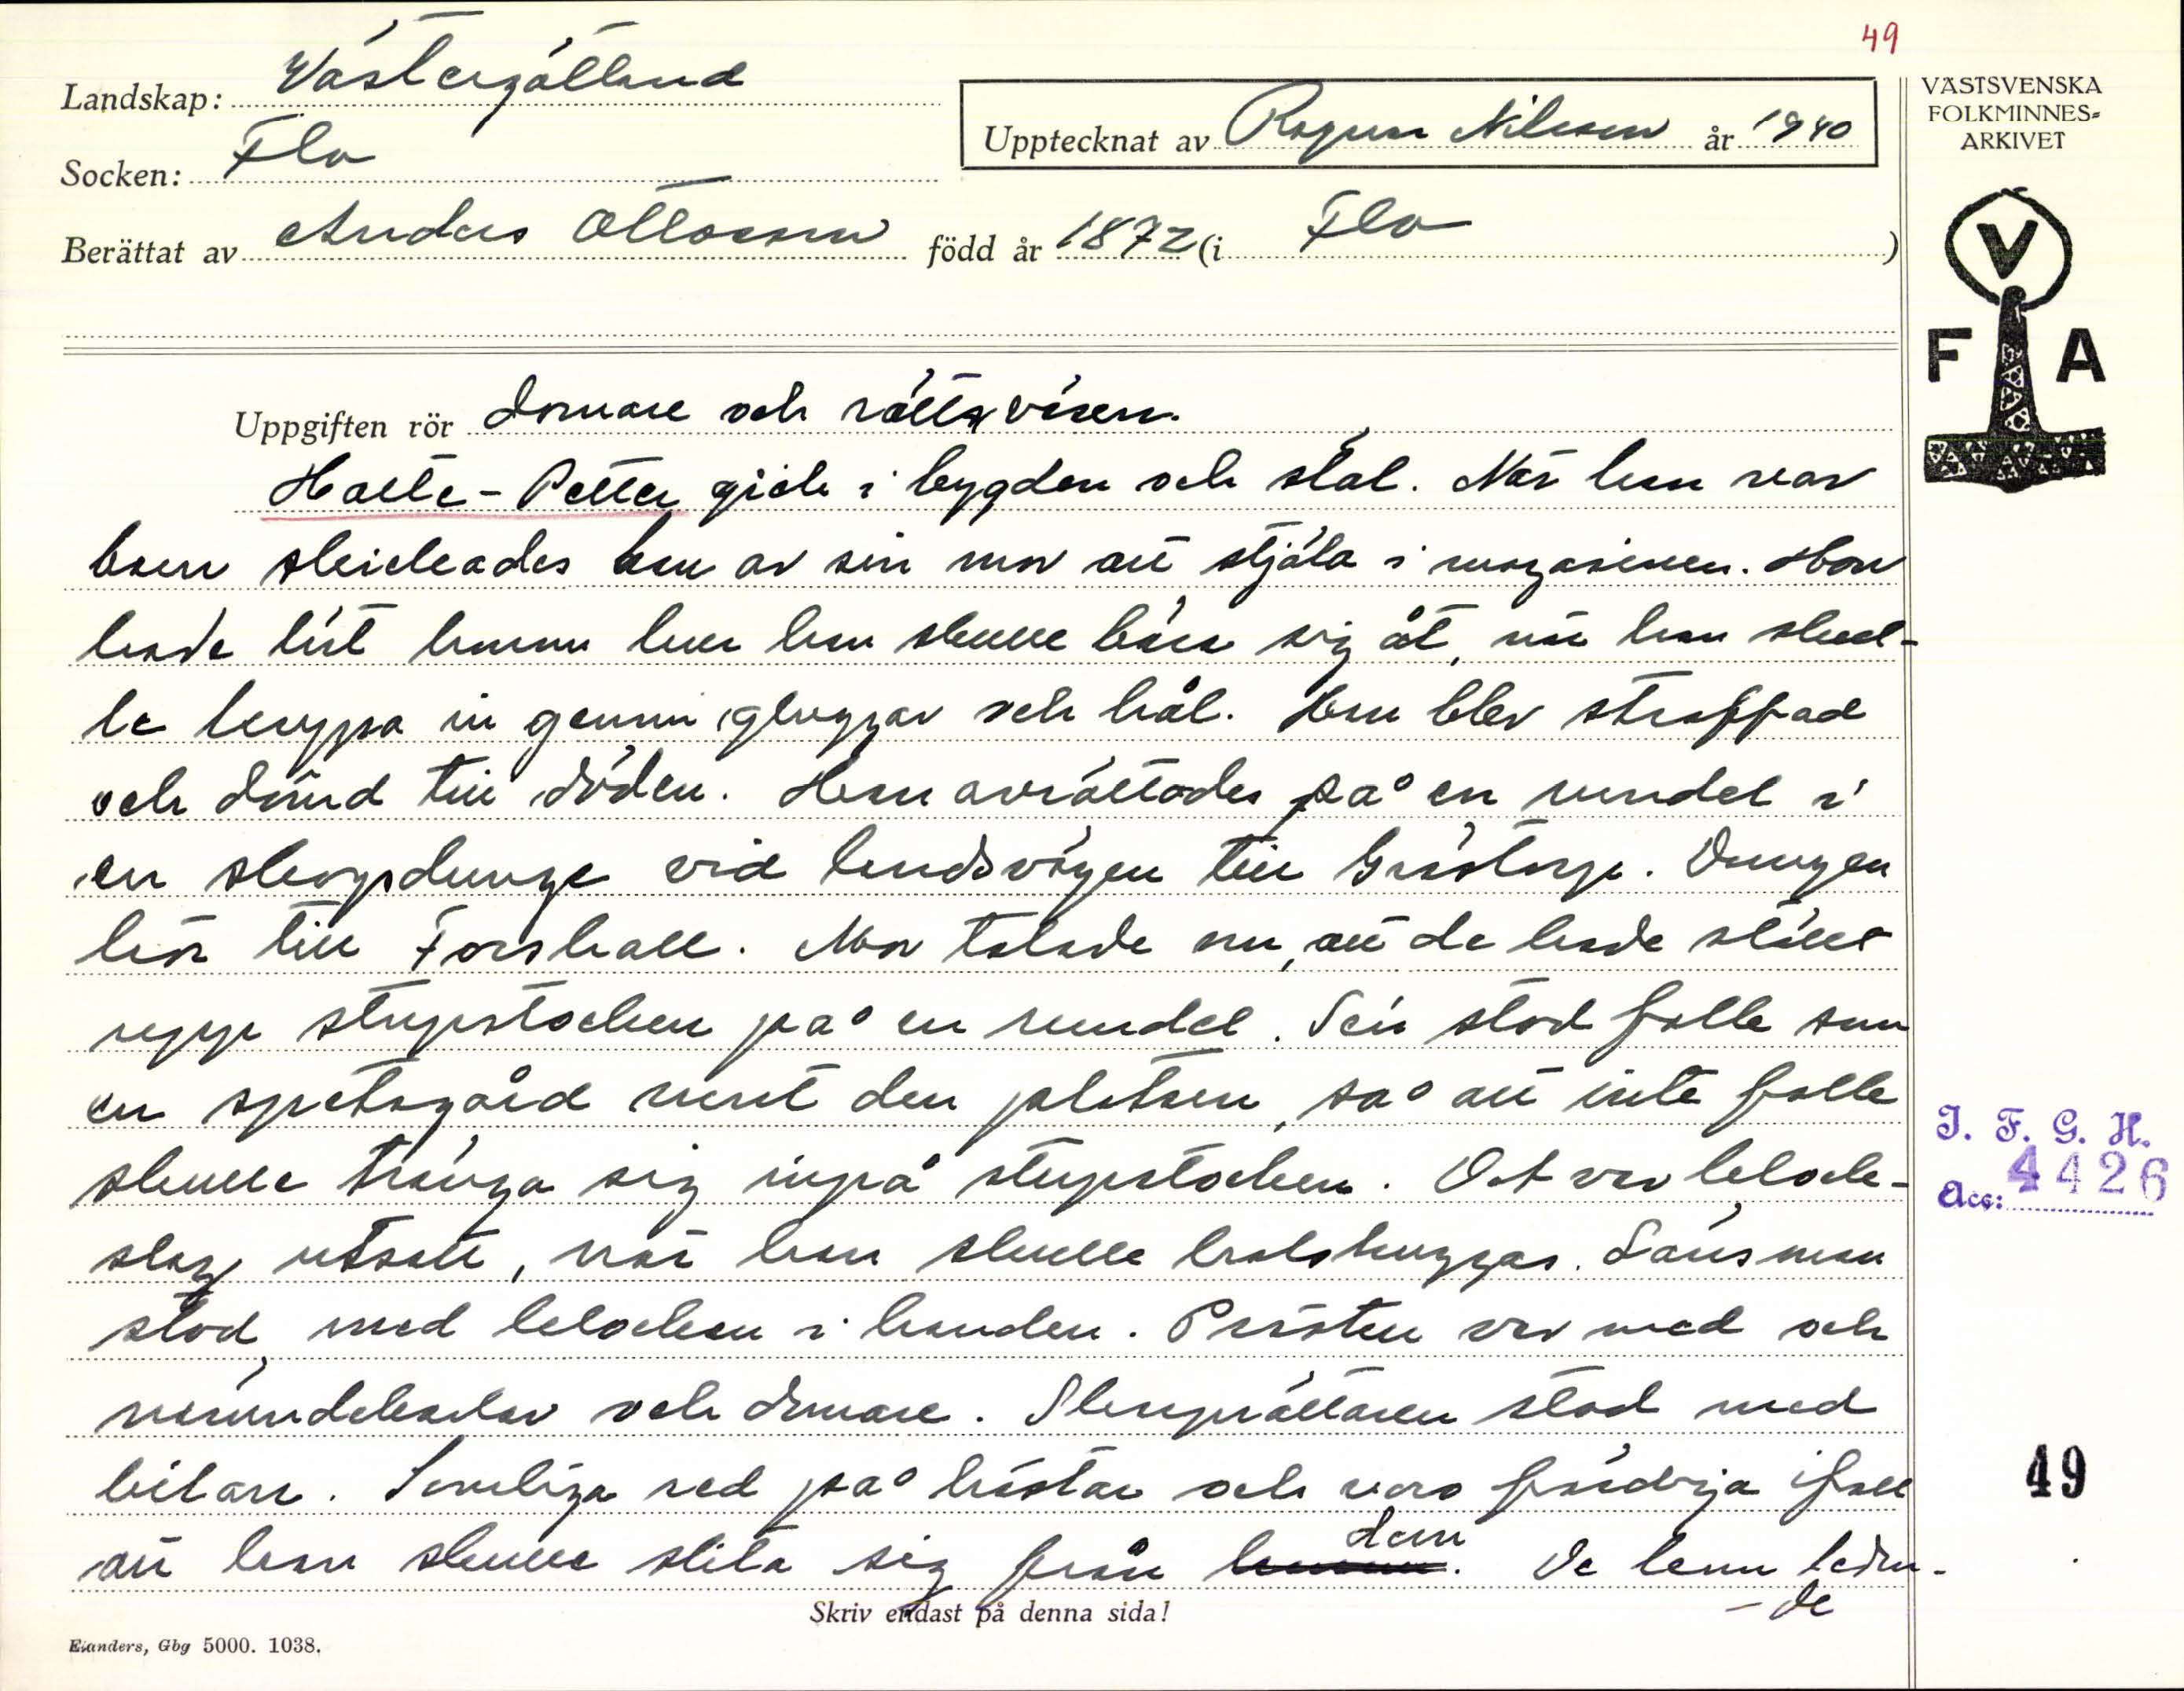 49
Landskap: Västergötland
VÄSTSVENSKA
FOLKMINNES-
ARKIVET
Upptecknat av Ragnar Nilsson år 1940
Socken: Flo
Berättat av Anders Ottosson född år 1872 (i Flo)
V
F A
Uppgiften rör domare och rättsväsen.
Halte-Petter gick i bygden och stal. När han var
barn skickades han av sin mor att stjäla i magasinen. Hon
hade lärt honom hur han skulle bära sig åt, när han skul-
le krypa in genom gluggar och hål. Han blev straffad
och dömd till döden. Han avrättades på en rundel i
en skogsdunge vid landsvägen till Grästorp. Dungen
hör till Forshall. Mor talade om, att de hade ställt
upp stupstocken på en rundel. Sen stod folk som
en spetsgård runt den platsen, så att inte folk
skulle tränga sig inpå stupstocken. Det var klock-
slag utsatt, när han skulle halshuggas. Länsman
stod med klockan i handen. Prästen var med och
nämndekarlar och domare. Skarprättaren stod med
bilan. Somliga red på hästar och voro färdiga ifall
att han skulle slita sig från dem. De kom ledan-
de
Skriv endast på denna sida!
Elanders, Gbg 5000. 1038.
I. F. G. H.
Acc: 4426
49